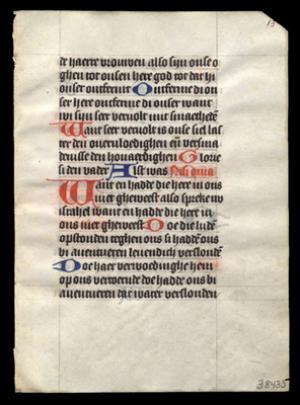 13
de haerre vrouwen also sijn onse o
ghen tot onsen here god tot dat hi
onser ontfermt Ontferme di on
ser here ontferme di onser want
wi sijn seer veruolt mit
Want seer veruolt is onse siel
den ouervloedighen en versma
denisse den houaerdighen Glorie
si den vader Alst was Nisi quia
Want en hadde die here in ons
niet gheweest also spreke nv
israhel want en hadde die here in
ons niet gheweest Doe die lude
opstonden teghen ons si hadde ons
bi auentueren leuendich verslonde
Doe haer verwoedinghe hem
op ons verwende doe hadde ons
bi auentueren dat water verslonden
38435